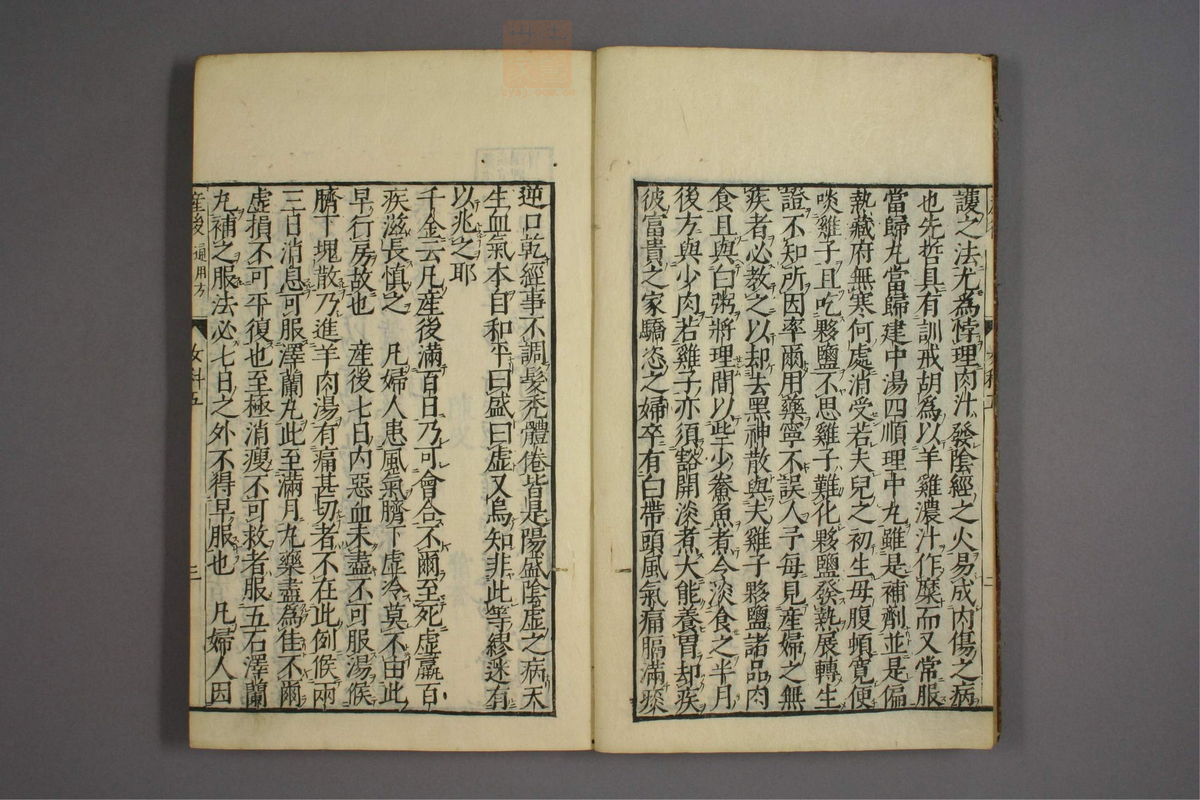 護之法尤為悖理肉汁發陰經之火易成内傷之病
也先哲具有訓戒胡為以羊雞濃汁作糜而又常服
當歸丸當歸建中湯四順理中丸雖是補劑並是偏
熱藏府無寒何處消受若夫兒之初生母腹頓寛便
啖雞子且吃夥鹽不思雞子難化夥鹽發熱展轉生
證不知所因率爾用藥寧不誤人予每見産婦之無
疾者必教之以却去黑神散與夫雞子夥鹽諸品肉
食且與白粥將理間以些少鯗魚煮令淡食之半月
後方與少肉若雞子亦須豁開淡煮大能養胃却疾
彼富貴之家驕恣之婦卒有白帶頭風氣痛膈滿痰
逆口乾經事不調髮禿體倦皆是陽盛陰虚之病天
生血氣本自和平曰盛曰虚又烏知非此等繆迷有
以兆之耶
千金云凡産後滿百日乃可會合不爾至死虚羸百
疾滋長慎之　凡婦人患風氣臍下虚冷莫不由此
早行房故也　産後七日内惡血未盡不可服湯候
臍下塊散乃進羊肉湯有痛甚切者不在此例候兩
三日消息可服澤蘭丸此至滿月丸藥盡為佳不爾
虚損不可平復也至極消瘦不可救者服五石澤蘭
丸補之服法必七日之外不得早服也　凡婦人因
産後 通用方 女科五 三